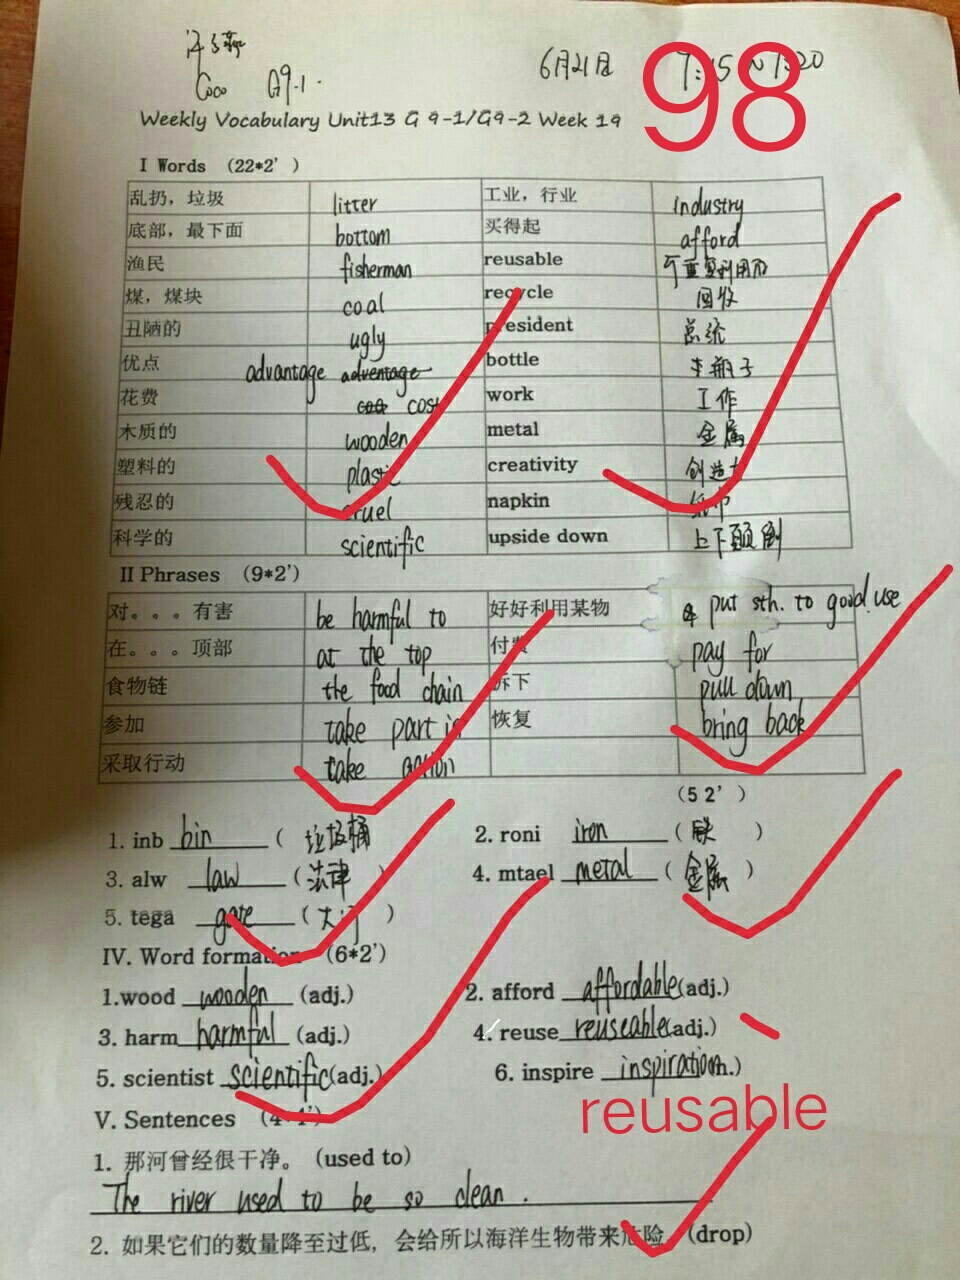 6月21日
Coco G9.1.
98
Weekly Vocabulary Unit13 G 9-1/G9-2 Week 19
I Words (22*2')
乱扔，垃圾 litter 工业，行业 industry
底部，最下面 bottom 买得起 afford
渔民 fisherman reusable 可重复利用的
煤，煤块 coal recycle 回收
丑陋的 ugly president 总统
优点 advantage adventage bottle 瓶子
花费 cost work 工作
木质的 wooden metal 金属
塑料的 plastic creativity 创造力
残忍的 cruel napkin 纸巾
科学的 scientific upside down 上下颠倒
II Phrases (9*2')
对。。。有害 be harmful to 好好利用某物 put sth. to good use
在。。。顶部 at the top 付费 pay for
食物链 the food chain 拆下 pull down
参加 take part in 恢复 bring back
采取行动 take action
(5 2')
1. inb bin ( 垃圾桶 2. roni iron ( 铁 )
3. alw law ( 法律 ) 4. mtael metal ( 金属 )
5. tega gate ( 大门 )
IV. Word formation (6*2')
1.wood wooden (adj.) 2. afford affordable(adj.)
3. harm harmful (adj.) 4. reuse reuseable(adj.)
5. scientist scientific(adj.) 6. inspire inspiration(n.)
reusable
V. Sentences (4*4')
1. 那河曾经很干净。 (used to)
The river used to be so clean.
2. 如果它们的数量降至过低，会给所以海洋生物带来危险。(drop)